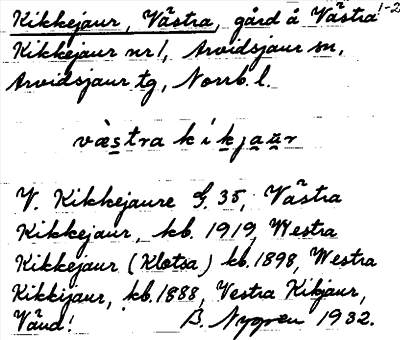 Kikkejaur, Västra, gård å Västra 1-2
Kikkejaur nr 1, Arvidsjaur sn,
Arvidsjaur tg, Norrb. l.
västra kikjaur
V. Kikkejaure G. 35, Västra
Kikkejaur, kb. 1919, Westra
Kikkejaur (Klotsa) kb. 1898, Westra
Kikkijaur, kb. 1888, Vestra Kikjaur,
Vänd! B. Nygren 1932.